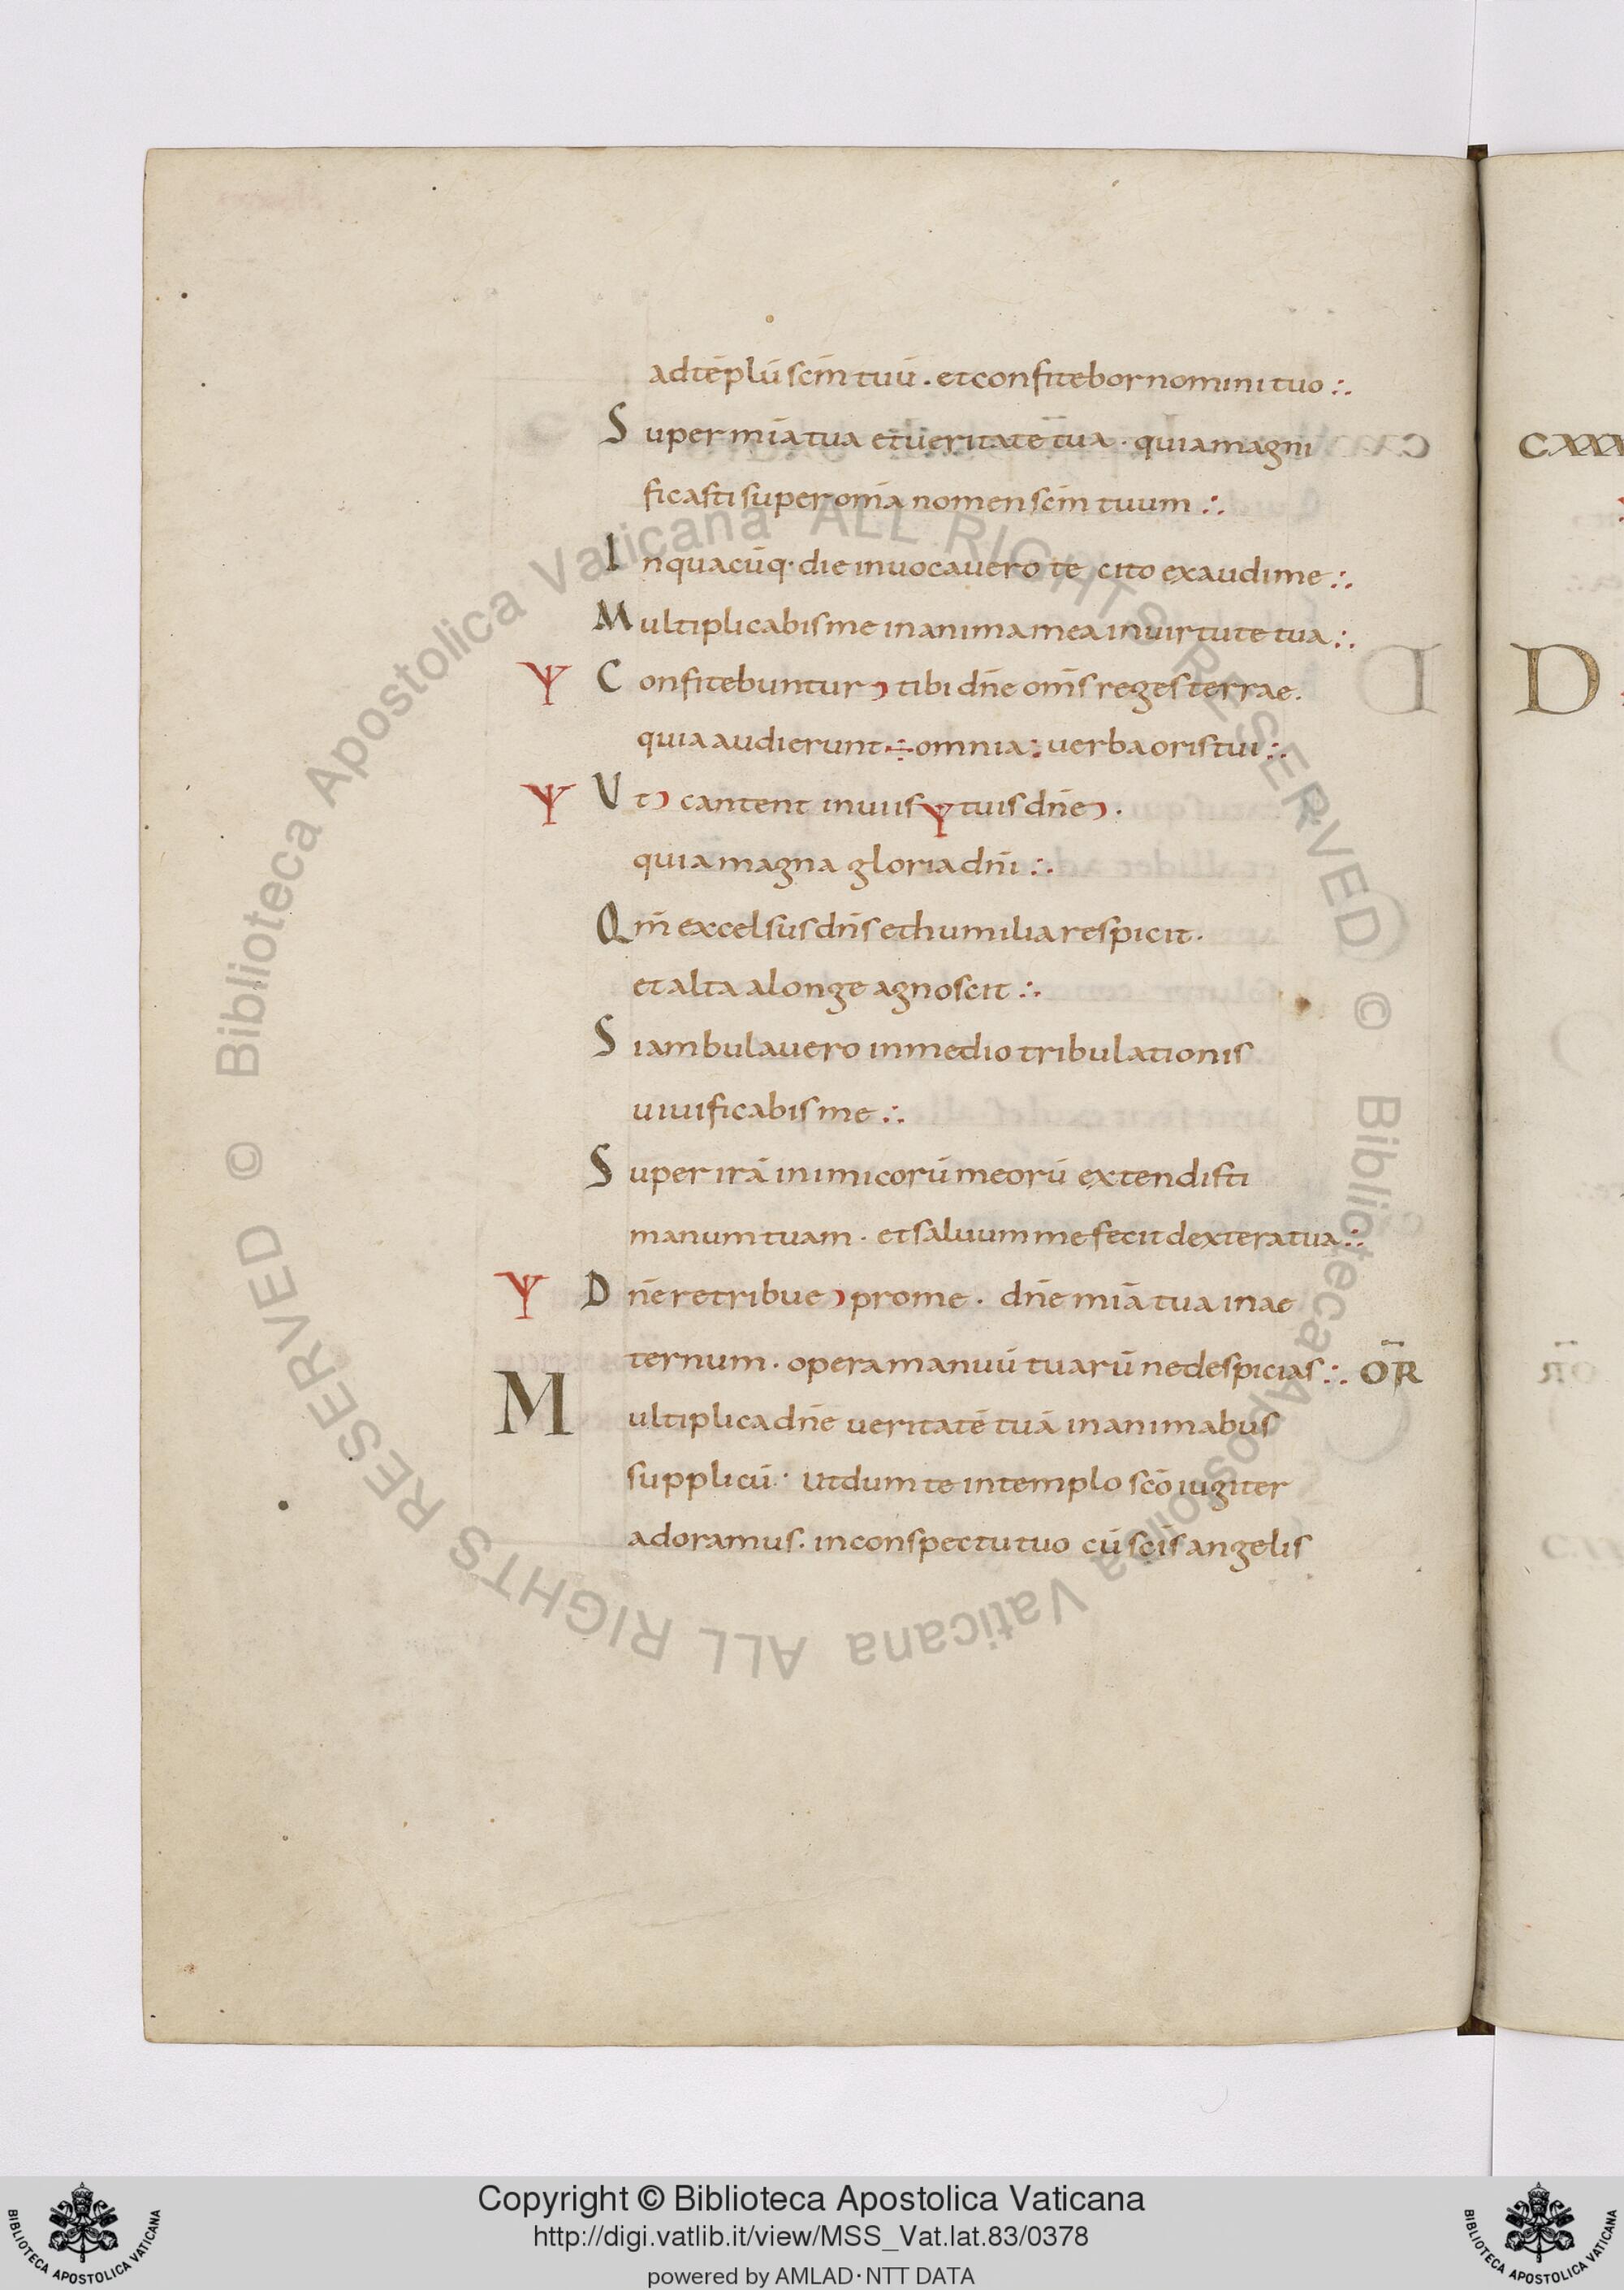 ad tēplū scm̄ tuū . et confitebor nomini tuo :.
Super mīa tua et ueritate tua . quia magni
ficasti super om̄a nomen scm̄ tuum :.
In quacūq· die inuocauero te cito exaudi me :.
Multiplicabis me in anima mea in uirtute tua :.
Confitebuntur tibi dn̄e om̄s reges terrae .
quia audierunt ÷ omnia : uerba oris tui :.
Ut cantent in uiis tuis dn̄e .
quia magna gloria dn̄i :.
Qm̄ excelsus dn̄s et humilia respicit .
et alta a longe agnoscit :.
Si ambulauero in medio tribulationis
uiuificabis me :.
Super irā inimicorū meorū extendisti
manum tuam . et saluum me fecit dextera tua :.
Dn̄e retribue pro me . dn̄e mīa tua in ae
ternum . opera manuū tuarū ne despicias :. OR̄
Multiplica dn̄e ueritatē tuā in animabus
supplicū : ut dum te in templo scō iugiter
adoramus . in conspectu tuo cū scīs angelis
CXXX
D
© Biblioteca Apostolica Vaticana ALL RIGHTS RESERVED
© Biblioteca Apostolica Vaticana ALL RIGHTS RESERVED
Copyright © Biblioteca Apostolica Vaticana
http://digi.vatlib.it/view/MSS_Vat.lat.83/0378
powered by AMLAD·NTT DATA
BIBLIOTECA APOSTOLICA VATICANA
BIBLIOTECA APOSTOLICA VATICANA